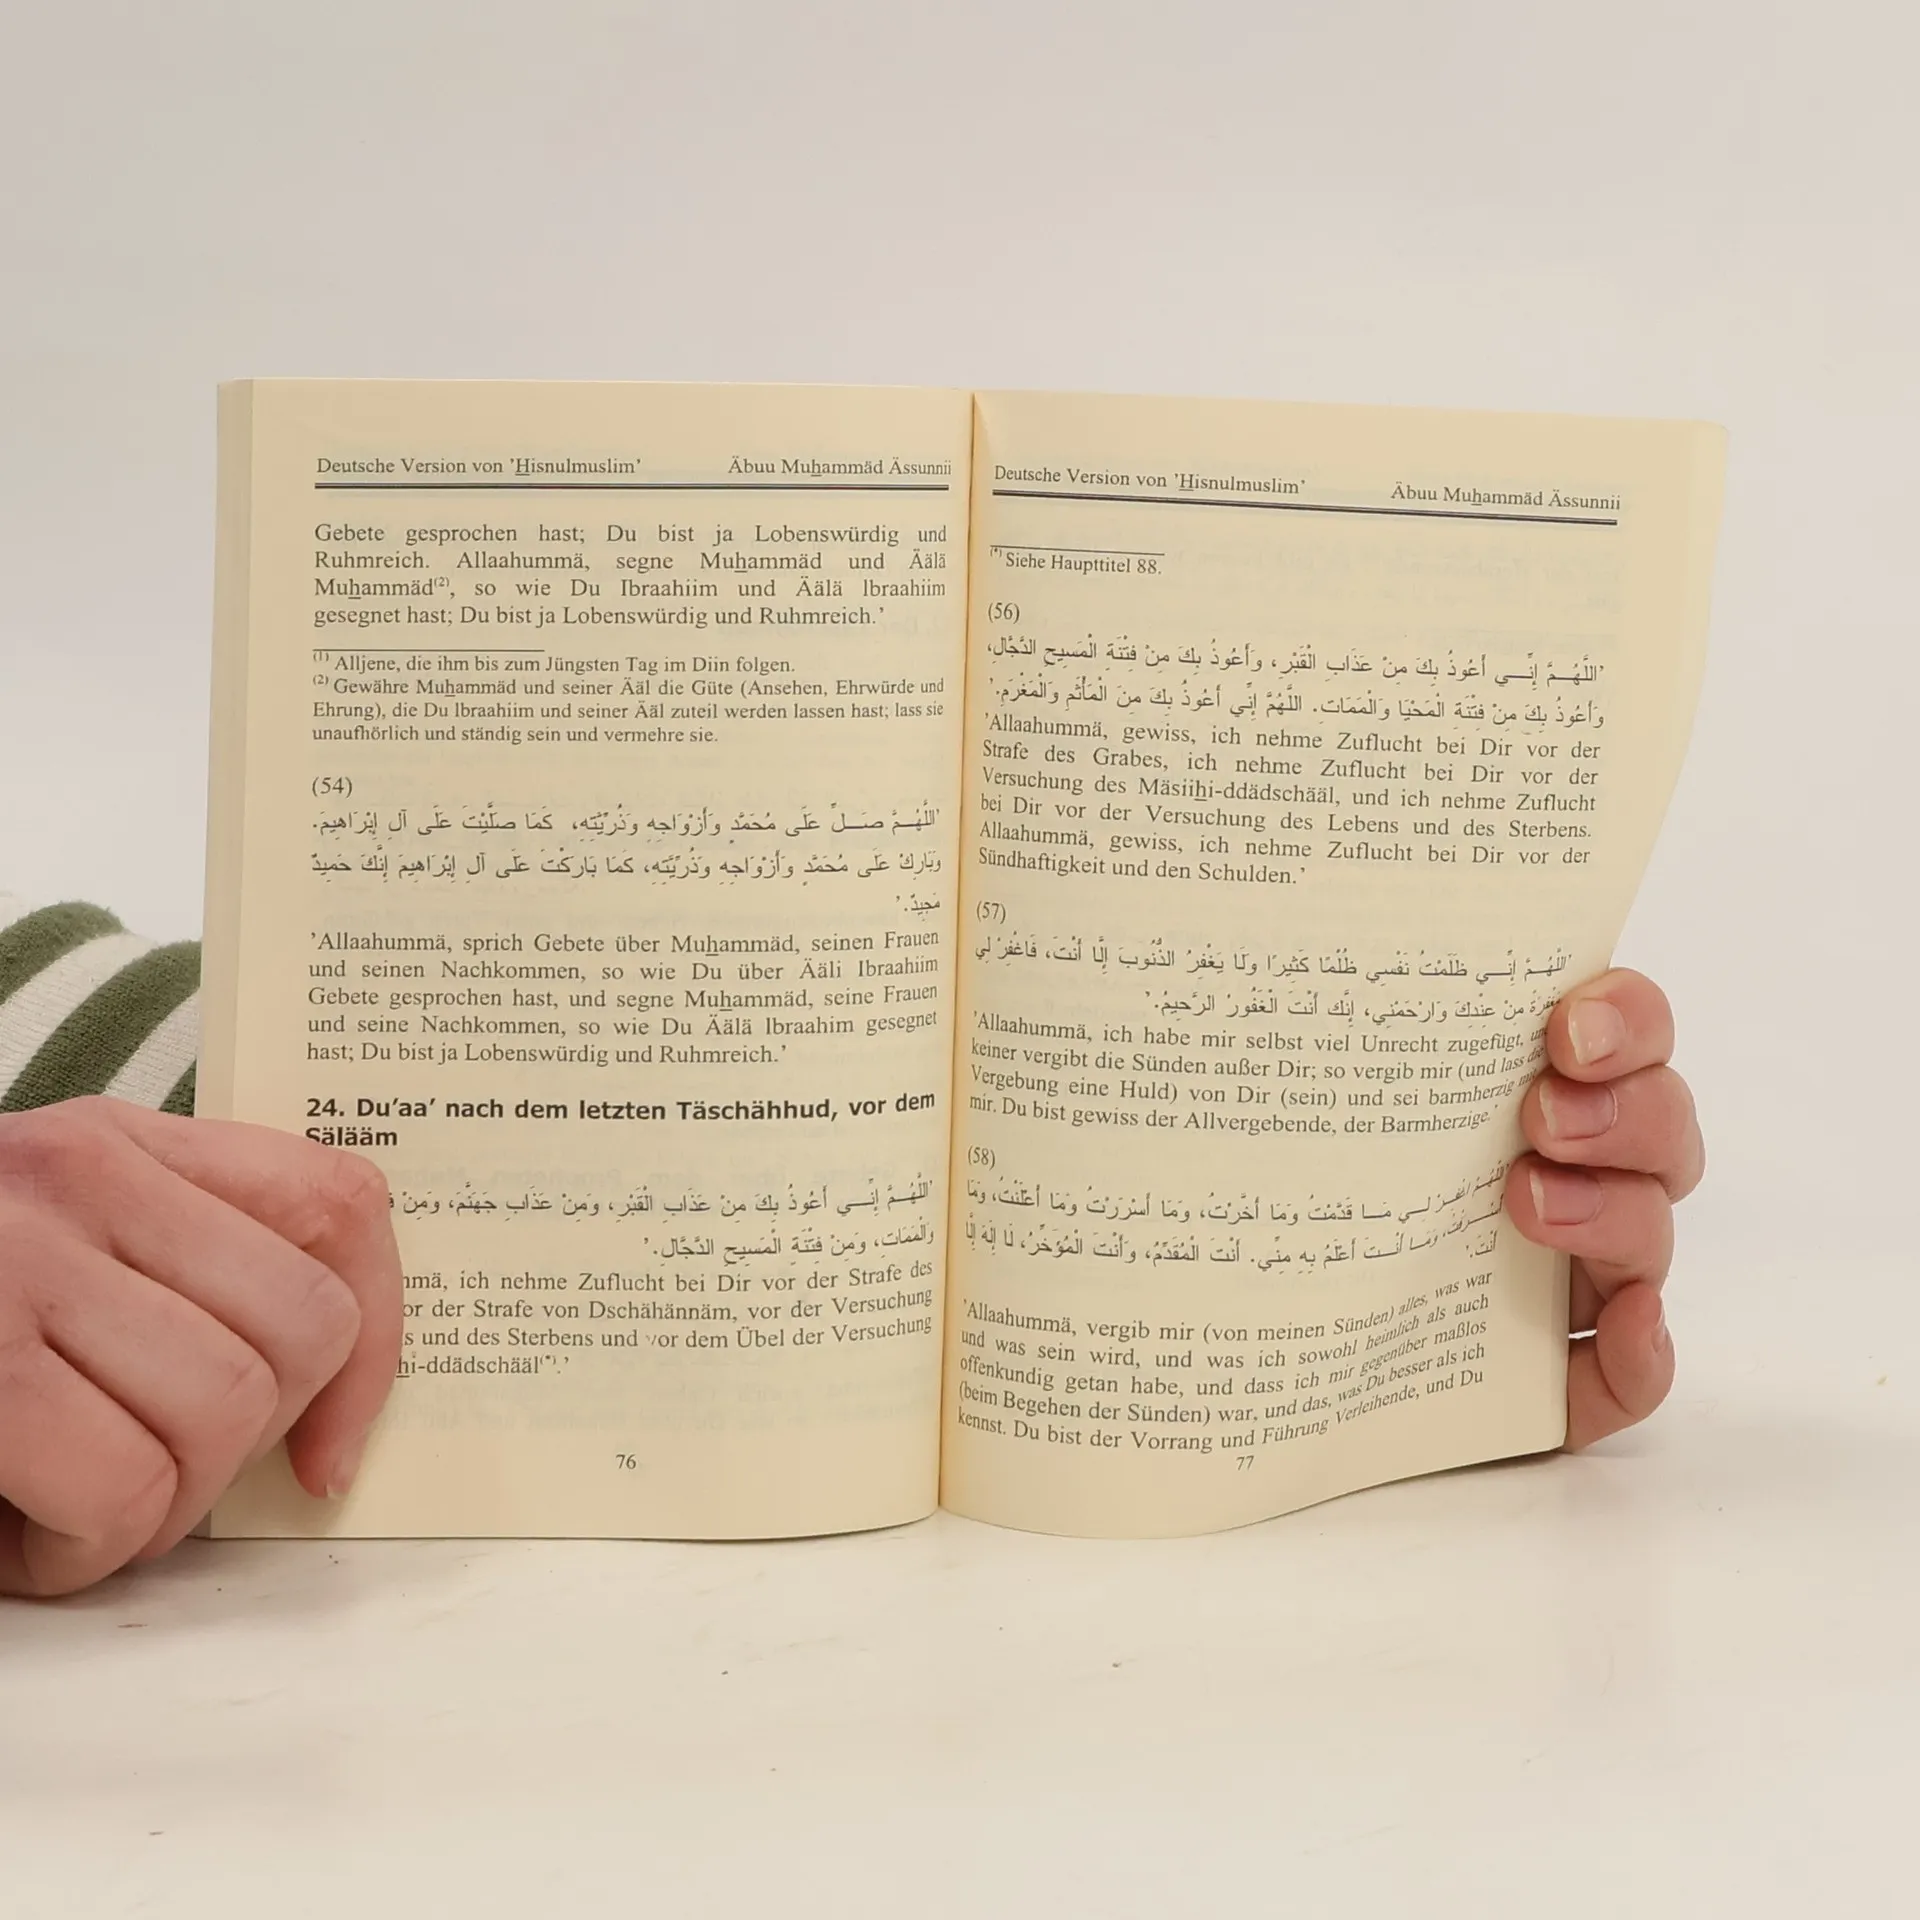 Deutsche Version von 'Hisnulmuslim' Äbuu Muhammäd Ässunnii
Gebete gesprochen hast; Du bist ja Lobenswürdig und
Ruhmreich. Allaahummä, segne Muhammäd und Äälä
Muhammäd⁽²⁾, so wie Du Ibraahiim und Äälä Ibraahiim
gesegnet hast; Du bist ja Lobenswürdig und Ruhmreich.'
(1) Alljene, die ihm bis zum Jüngsten Tag im Diin folgen.
(2) Gewähre Muhammäd und seiner Ääl die Güte (Ansehen, Ehrwürde und
Ehrung), die Du Ibraahiim und seiner Ääl zuteil werden lassen hast; lass sie
unaufhörlich und ständig sein und vermehre sie.
(54)
'اللَّهُـمَّ صَـلِّ عَلَى مُحَمَّدٍ وَأَزْوَاجِهِ وَذُرِّيَّتِهِ، كَمَا صَلَّيْتَ عَلَى آلِ إِبْرَاهِيمَ.
وَبَارِكْ عَلَى مُحَمَّدٍ وَأَزْوَاجِهِ وَذُرِّيَّتِهِ، كَمَا بَارَكْتَ عَلَى آلِ إِبْرَاهِيمَ إِنَّكَ حَمِيدٌ
مَجِيدٌ.'
'Allaahummä, sprich Gebete über Muhammäd, seinen Frauen
und seinen Nachkommen, so wie Du über Ääli Ibraahiim
Gebete gesprochen hast, und segne Muhammäd, seine Frauen
und seine Nachkommen, so wie Du Äälä Ibraahim gesegnet
hast; Du bist ja Lobenswürdig und Ruhmreich.'
24. Du'aa' nach dem letzten Täschähhud, vor dem
Sälääm
'اللَّهُـمَّ إِنِّـي أَعُوذُ بِكَ مِنْ عَذَابِ الْقَبْرِ، وَمِنْ عَذَابِ جَهَنَّمَ، وَمِنْ
وَالْمَمَاتِ، وَمِنْ فِتْنَةِ الْمَسِيحِ الدَّجَّالِ.'
ich nehme Zuflucht bei Dir vor der Strafe des
der Strafe von Dschähännäm, vor der Versuchung
und des Sterbens und vor dem Übel der Versuchung
hi-ddädschääl(*).'
76
Deutsche Version von 'Hisnulmuslim' Äbuu Muhammäd Ässunnii
(*) Siehe Haupttitel 88.
(56)
'اللَّهُـمَّ إِنِّـي أَعُوذُ بِكَ مِنْ عَذَابِ الْقَبْرِ، وَأَعُوذُ بِكَ مِنْ فِتْنَةِ الْمَسِيحِ الدَّجَّالِ،
وَأَعُوذُ بِكَ مِنْ فِتْنَةِ الْمَحْيَا وَالْمَمَاتِ. اللَّهُمَّ إِنِّي أَعُوذُ بِكَ مِنَ الْمَأْثَمِ وَالْمَغْرَمِ.'
'Allaahummä, gewiss, ich nehme Zuflucht bei Dir vor der
Strafe des Grabes, ich nehme Zuflucht bei Dir vor der
Versuchung des Mäsiihi-ddädschääl, und ich nehme Zuflucht
bei Dir vor der Versuchung des Lebens und des Sterbens.
Allaahummä, gewiss, ich nehme Zuflucht bei Dir vor der
Sündhaftigkeit und den Schulden.'
(57)
'اللَّهُـمَّ إِنِّـي ظَلَمْتُ نَفْسِي ظُلْمًا كَثِيرًا وَلَا يَغْفِرُ الذُّنُوبَ إِلَّا أَنْتَ، فَاغْفِرْ لِي
مَغْفِرَةً مِنْ عِنْدِكَ وَارْحَمْنِي، إِنَّكَ أَنْتَ الْغَفُورُ الرَّحِيمُ.'
'Allaahummä, ich habe mir selbst viel Unrecht zugefügt, und
keiner vergibt die Sünden außer Dir; so vergib mir (und lass die
Vergebung eine Huld) von Dir (sein) und sei barmherzig mit
mir. Du bist gewiss der Allvergebende, der Barmherzige.'
(58)
'اللَّهُـمَّ اغْفِرْ لِـي مَـا قَدَّمْتُ وَمَا أَخَّرْتُ، وَمَا أَسْرَرْتُ وَمَا أَعْلَنْتُ، وَمَا
أَسْـرَفْتُ، وَمَـا أَنْـتَ أَعْلَمُ بِهِ مِنِّي. أَنْتَ الْمُقَدِّمُ، وَأَنْتَ الْمُؤَخِّرُ، لَا إِلَهَ إِلَّا
أَنْتَ.'
'Allaahummä, vergib mir (von meinen Sünden) alles, was war
und was sein wird, und was ich sowohl heimlich als auch
offenkundig getan habe, und dass ich mir gegenüber maßlos
(beim Begehen der Sünden) war, und das, was Du besser als ich
kennst. Du bist der Vorrang und Führung Verleihende, und Du
77